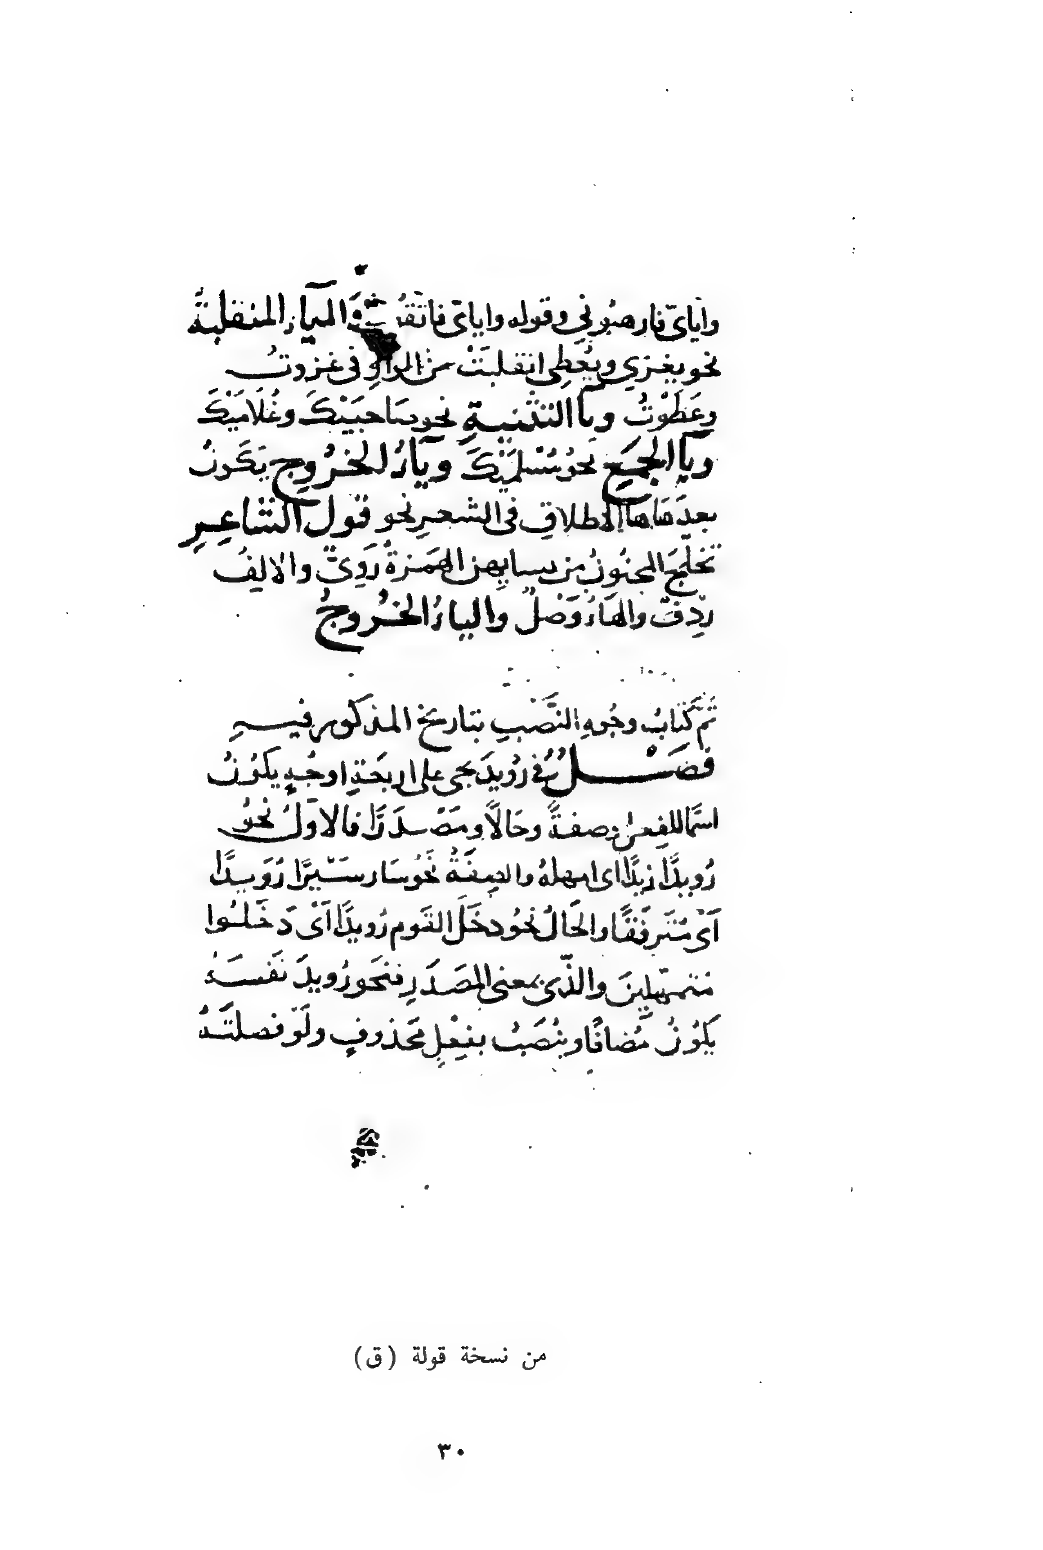 واياىَ فارهبوني وقوله واياىَ فاتقون وَالياء المنقلبة
نحو يغزي ويُعطي انقلبَتْ من الواو في غزوتُ
وعَطَوْتُ ويآ التثنيةِ نحو صاحبَيْكَ وغُلَامَيْكَ
ويآ الجَمعِ نحوُ مُسْلِمَيْكَ ويآءُ الخُرُوجِ يَكونُ
بعدَهَا هآ الاطلاقِ في الشعرِ نحو قول الشاعِرِ
تخلّجَ المجنُونُ من كسايهن الهَمزةُ رَوِىٌّ والالِفُ
رِدفٌ والهَاءُ وَصْلٌ والياءُ الخُرُوجُ
تم كتابُ وجُوهِ النَّصْبِ بتاريخ المذكور فيهِ
فصَـــلٌ في رُويدَ يجي على اربعَةِ اوجُهٍ يكونُ
اسمًا للفِعلِ وصفةً وحَالًا ومَصْدَرًا فالاوّلُ نحوُ
رُويدًا زيدًا اى امهلهُ والصِفَةُ نحوُ سَارَ سَيْرًا رُوَيدًا
آىْ مُترفّقًا والحَالُ نحوُ دخَلَ القَوم رُويدًا آىْ دَخَلُوا
متمهّلينَ والذّي بمعنى المصْدَرِ فنحو رُويدَ نَفسَهُ
يَكُونُ مُضافًا وينُصَبُ بفِعْلٍ محَذوفٍ ولَوْ فصلتَهُ
من نسخة قولة (ق)
٣٠